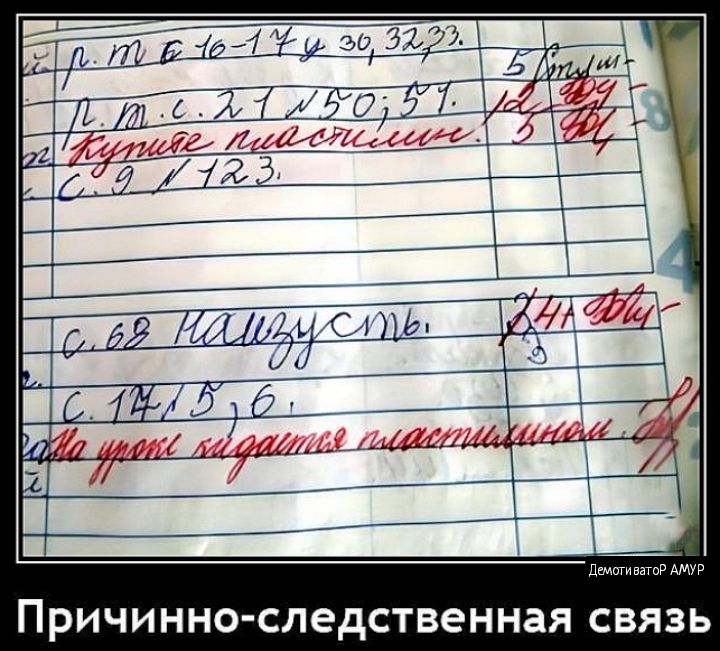 р. т с 16-17 у 30, 32, 33. 5
р. т. с. 21 №50; 51. 12
Купите пластилин! 5
с. 9 №123.
с. 68 наизусть. 4+
с. 17 №5, 6.
На уроке кидается пластилином.
ДемотиватоР АМУР
Причинно-следственная связь